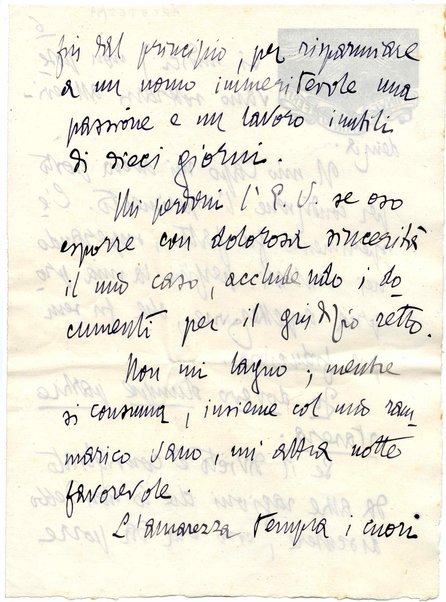 fin dal principio, per risparmiare
a un uomo immeritevole una
passione e un lavoro inutili
di dieci giorni.
Mi perdoni l'E. V. se oso
esporre con dolorosa sincerità
il mio caso, accludendo i do-
cumenti per il giudizio retto.
Non mi lagno; mentre
si consuma, insieme col mio ram-
marico vano, un'altra notte
favorevole.
L'amarezza tempra i cuori